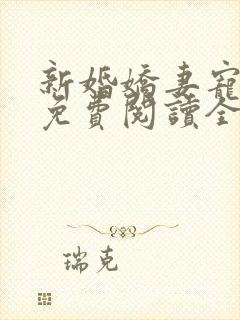 新婚嬌妻寵
免費閱讀全
瑞克